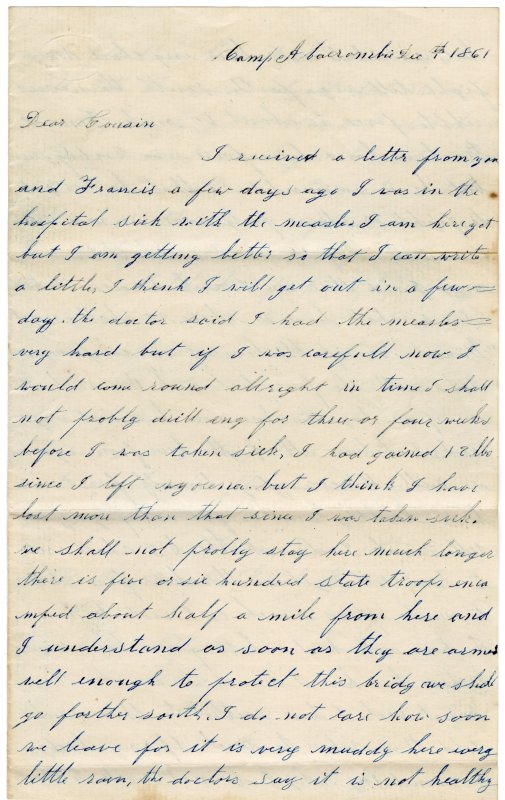 Camp Abacrombie Dec 7th 1861
Dear Cousin
I recived a letter from you
and Francis a few days ago I was in the
hospital sick with the measles I am here yet
but I am getting better so that I can write
a little, I think I will get out in a few
days. the doctor said I had the measles
very hard but if I was carefull now I
would come round allright in time I shall
not probly drill eny for three or four weeks
before I was taken sick, I had gained 12 lbs
since I left wyocena. but I think I have
lost more than that since I was taken sick.
we shall not probly stay here much longer
there is five or six hundred state troops enca
mped about half a mile from here and
I understand as soon as they are armed
well enough to protect this bridg we shall
go farther south. I do not care how soon
we leave for it is very muddy here every
little rain, the doctors say it is not healthy